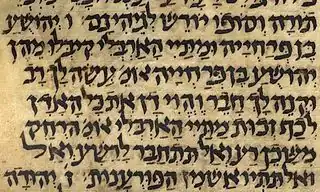 תורה וסופו יורש לגיהינם ו יהושע
בן פרחייה ומתיי הארבלי קיבלו מהן
יהושע בן פרחייה אומ עשה לך רב
וקנה לך חבר והוי דן את כל האדן
לכף זכות מתיי הארבלי אומ הרחק
משכן רע ואל תתחבר לרשע ואל
ואל תתיואש מן הפורענות ז יהודה